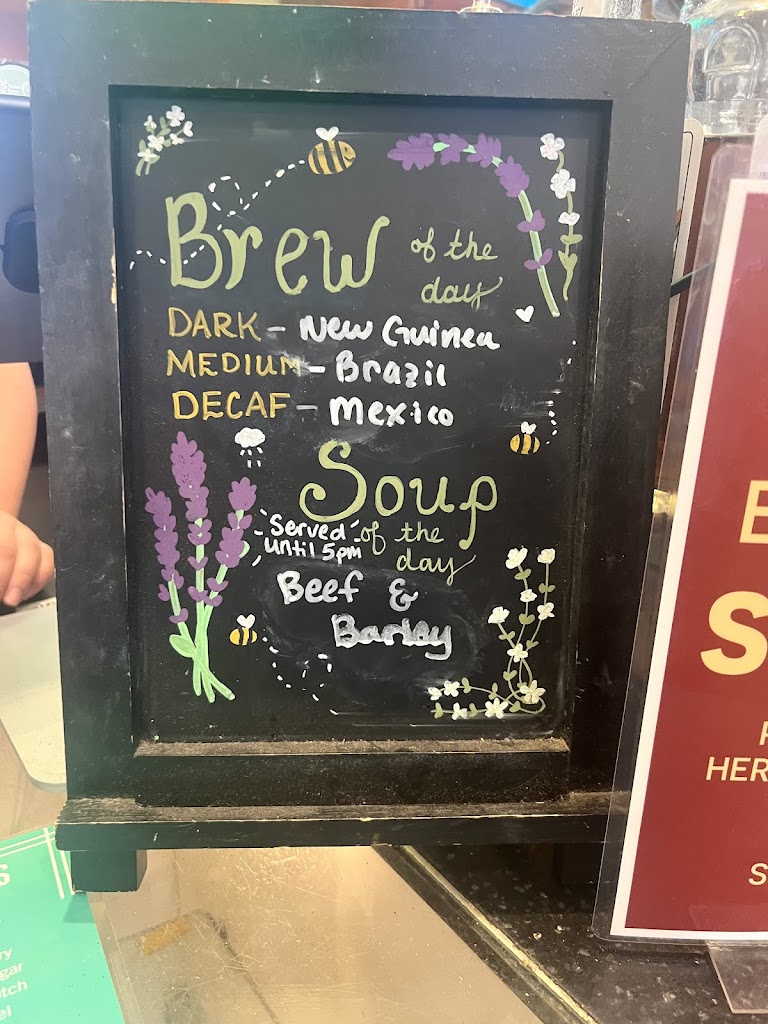 Brew of the day
DARK - New Guinea
MEDIUM - Brazil
DECAF - Mexico
Soup of the day
"Served until 5pm"
Beef &
Barley
HER
S